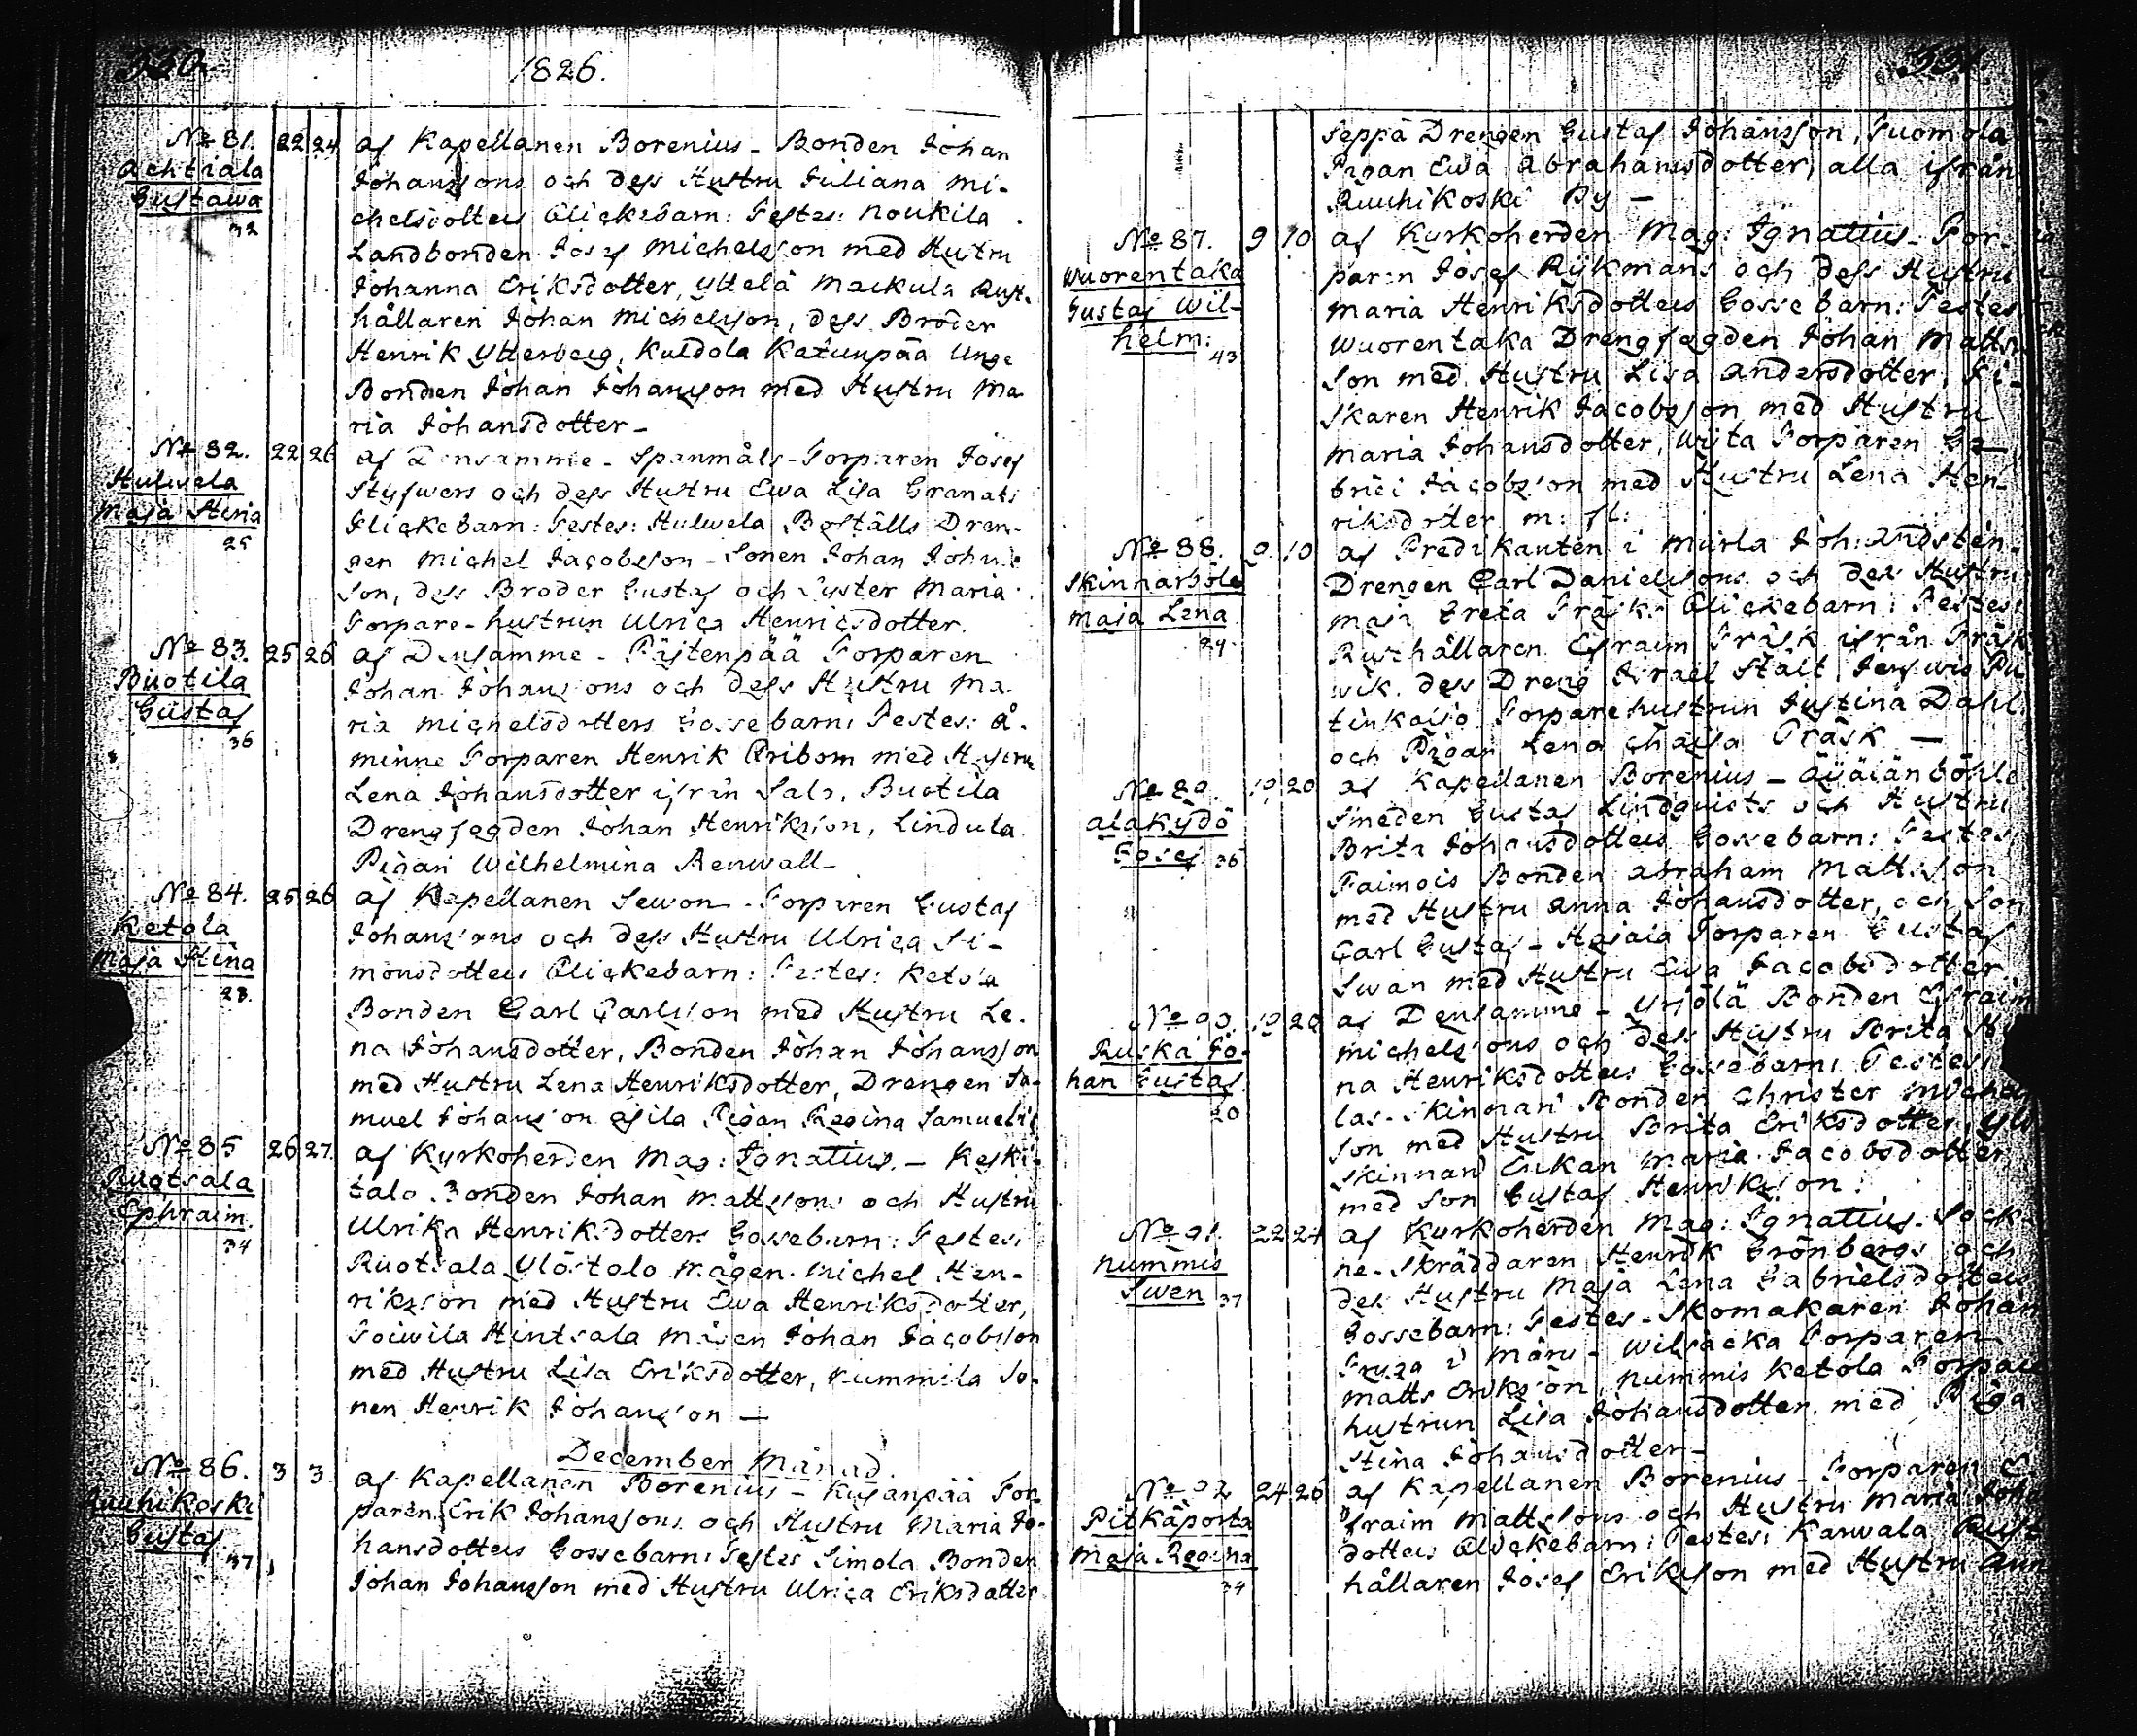 330.
1826.
No 81. 22 24 af Kapellanen Borenius - Bonden Johan
Achtiala Johanssons och dess Hustru Juliana Mi-
Gustawa chelsdotters Flickebarn: Testes: Noukila
32 Landbonden Josef Michelsson med Hustru
Johanna Eriksdotter, Yttelä Mackula Rust-
hållaren Johan Michelsson, dess Broder
Henrik Ytterberg, Kuldola Katunpää Unge
Bonden Johan Johansson med Hustru Ma
ria Johansdotter -
No 82. 22 26 af Densamme - Spanmåls-Torparen Josef
Hulwela Styfwers och dess Hustru Ewa Lisa Granats
Maja Stina Flickebarn: Testes: Hulwela Boställs Dren-
25 gen Michel Jacobsson - Sonen Johan Johans
son, dess Broder Gustaf och Syster Maria
Torpare-hustrun Ulrica Henricsdotter.
No 83. 25 26 af Densamme - Päjtenpää Torparen
Buotila Johan Johanssons och dess Hustru Ma
Gustaf ria Michelsdotters Gossebarn: Testes: Å-
36 minne Torparen Henrik Qribom med Hustru
Lena Johansdotter ifrån Salo, Buotila
Drengfogden Johan Henriksson, Lindula
Pigan Wilhelmina Renwall
No 84. 25 26 af Kapellanen Sewon - Torparen Gustaf
Ketola Johanssons och dess Hustru Ulrica Si-
Maja Stina monsdotters Flickebarn: Testes: Ketola
28. Bonden Carl Carlsson med Hustru Le-
na Johansdotter, Bonden Johan Johansson
med Hustru Lena Henriksdotter, Drengen Sa-
muel Johansson Pigan Regina Samuels
No 85 26 27. af Kyrkoherden Mag: Ignatius. - Keski-
Ruotsala talo Bonden Johan Mattssons och Hustru
Ephraim. Ulrika Henriksdotters Gossebarn: Testes:
34 Ruotsala Ylöstalo Mågen Michel Hen-
riksson med Hustru Ewa Henriksdotter,
Soiwila Hintsala Mågen Johan Jacobsson
med Hustru Lisa Eriksdotter, Nummila So-
nen Henrik Johansson -
December Månad.
No 86. 3 3. af Kapellanen Borenius - Kujanpää Tor-
Ruuhikoski paren Erik Johanssons och Hustru Maria Jo-
Gustaf. hansdotters Gossebarn: Testes Simola Bonden
37 Johan Johansson med Hustru Ulrica Eriksdotter
331.
Seppä Drengen Gustaf Johansson, Suomola
Pigan Ewa Abrahamsdotter, alla ifrån
Ruuhikoski By -
No 87. 9 10 af Kyrkoherden Mag: Ignatius - Tor-
Wuorentaka paren Josef Rykmans och dess Hustru
Gustaf Wil- Maria Henriksdotters Gossebarn: Testes
helm: Wuorentaka Drengfogden Johan Matts-
43 son med Hustru Lisa Andersdotter, Fi-
skaren Henrik Jacobsson med Hustru
Maria Johansdotter, Torparen Ga-
briel Jacobsson med Hustru Lena Hen-
riksdotter m: fl:
No 88. 9 10 af Predikanten i Muurla Joh: Andstén-
Skinnarböle Drengen Carl Danielssons och dess Hustru
Maja Lena Maja Greta Träsk Flickebarn: Testes:
24 Rusthållaren Efraim Träsk ifrån Träsk
wik, dess Dreng Israel Stålt,
Torparehustrun Justina Dahl
och Pigan Lena Chaisa Träsk -
No 89. 19 20 af Kapellanen Borenius -
Alakydö Smeden Gustaf Lindquists och Hustru
Josef 36 Brita Johansdotters Gossebarn: Testes
Taimois Bonden Abraham Mattsson
med Hustru Anna Johansdotter, och Son
Carl Gustaf - Torparen Gustaf
Swan med Hustru Ewa Jacobsdotter.
No 90. 19 20 af Densamme - Yrjölä Bonden Efraim
Ruska Jo- Michelssons och dess Hustru Brita
han Gustaf na Henriksdotters Gossebarn: Testes:
20 Skinnari Bonden Christer Michels
son med Hustru Brita Eriksdotter, Yli
Skinnari Enkan Maria Jacobsdotter
med Son Gustaf Henriksson:
No 91. 22 24 af Kyrkoherden Mag: Ignatius - Sock-
Nummis ne-Skräddaren Henrik Grönbergs och
Swen 37 des Hustru Maja Lena Gabrielsdotters
Gossebarn: Testes - Skomakaren Johan
i Märy - Torparen
Matts Eriksson, Nummis Ketola Torpare
hustrun Lisa Johansdotter med Piga
Stina Johansdotter -
No 92 24 26 af Kapellanen Borenius - Torparen E-
Pitkäporta fraim Mattssons och Hustru Maria Joha
Maja Regina dotters Flickebarn: Testes: Karwala Rust
34 hållaren Josef Eriksson med Hustru Ann